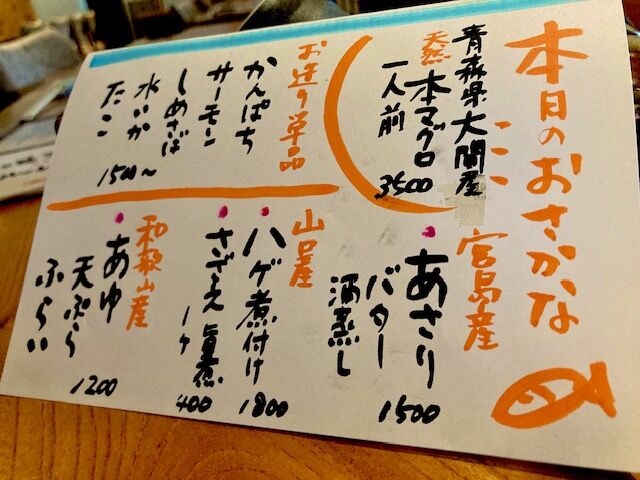 本日のおさかな
青森県大間産
天然
本マグロ
一人前
3500
お造り単品
かんぱち
サーモン
しめさば
水いか
たこ
1500〜
宮島産
あさり
バター
酒蒸し
1500
山口産
ハゲ煮付け
1800
さざえ旨煮
1ケ
400
和歌山産
あゆ
天ぷら
ふらい
1200